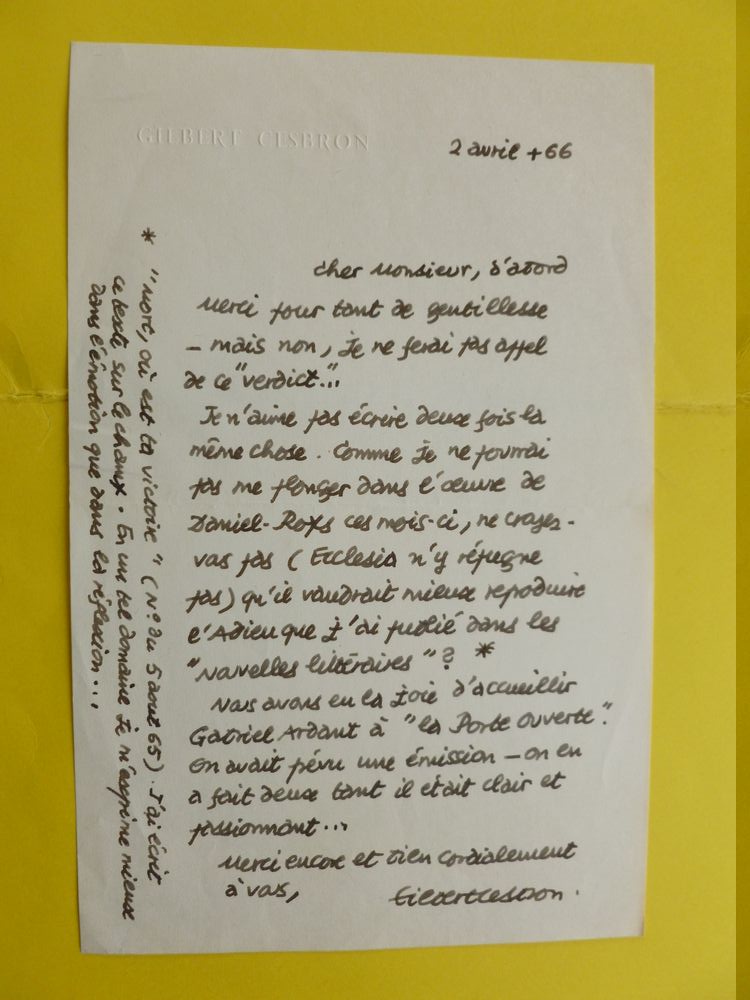 GILBERT CESBRON
2 avril +66
Cher Monsieur, d'abord
Merci pour tant de gentillesse
– mais non, je ne ferai pas appel
de ce "verdict"...
Je n'aime pas écrire deux fois la
même chose. Comme je ne pourrai
pas me plonger dans l'œuvre de
Daniel-Rops ces mois-ci, ne croyez-
vous pas (Ecclesia n'y répugne
pas) qu'il vaudrait mieux reproduire
l'Adieu que j'ai publié dans les
"Nouvelles littéraires"? *
Nous avons eu la joie d'accueillir
Gabriel Ardant à "la Porte Ouverte".
On avait pévu une émission – on en
a fait deux tant il était clair et
passionnant...
Merci encore et bien cordialement
à vous,
Gilbert Cesbron.
* "Mort, où est ta victoire" (N° du 5 août 65). J'ai écrit
ce texte sur le champ. En un tel domaine je m'exprime mieux
dans l'émotion que dans la réflexion...